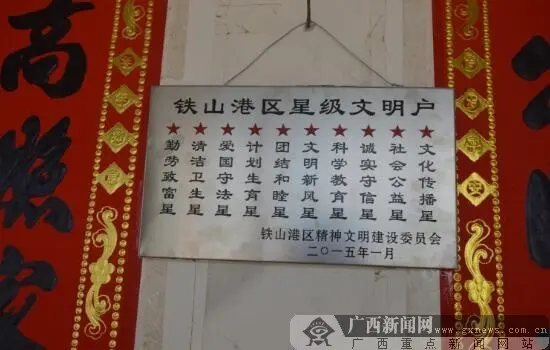 高
照
铁山港区星级文明户
★ ★ ★ ★ ★ ★ ★ ★ ★ ★
勤劳致富星
清洁卫生星
爱国守法星
计划生育星
团结和睦星
文明新风星
科学教育星
诚实守信星
社会公益星
文化传播星
铁山港区精神文明建设委员会
二〇一五年一月
广西新闻网
www.gxnews.com.cn
广西重点新闻网站